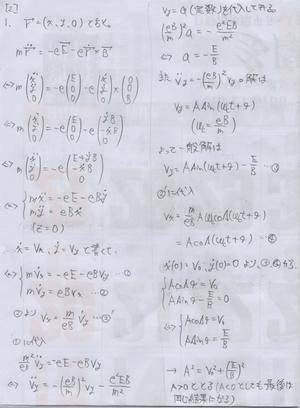 [2]
1. r⃗ = (x, y, 0) とおく。
m r̈⃗ = -eE⃗ - e ṙ⃗ × B⃗
⇔ m (ẍ ÿ 0) = -e (E 0 0) - e (ẋ ẏ 0) × (0 0 B)
⇔ m (ẍ ÿ 0) = -e (E 0 0) - e (ẏB -ẋB 0)
⇔ m (ẍ ÿ 0) = -e (E+ẏB -ẋB 0)
⇔ { mẍ = -eE - eBẏ
mÿ = eBẋ
(z=0)
ẋ = Vx, ẏ = Vy と書くて、
⇔ { m V̇x = -eE - eBVy …①
m V̇y = eBVx …②
②より Vx = m/eB V̇y …②'
①に代入
m²/eB V̈y = -eE - eBVy
⇔ V̈y = -(eB/m)² Vy - e²EB/m²
Vy = a (定数) を代入してみる。
(eB/m)² a = - e²EB/m²
⇔ a = - E/B
また V̈y = -(eB/m)² Vy の解は
Vy = A sin(ωct + φ)
(ωc = eB/m)
よって一般解は
Vy = A sin(ωct + φ) - E/B …③
②'に代入
Vx = m/eB Aωc cos(ωct + φ)
= A cos(ωct + φ) …④
ẋ(0) = V0, ẏ(0) = 0 より, ③, ④から,
{ A cosφ = V0
A sinφ - E/B = 0
⇔ { A cosφ = V0
A sinφ = E/B
→ A² = V0² + (E/B)²
A>0とする (A<0としても最後は
同じ結果になる)